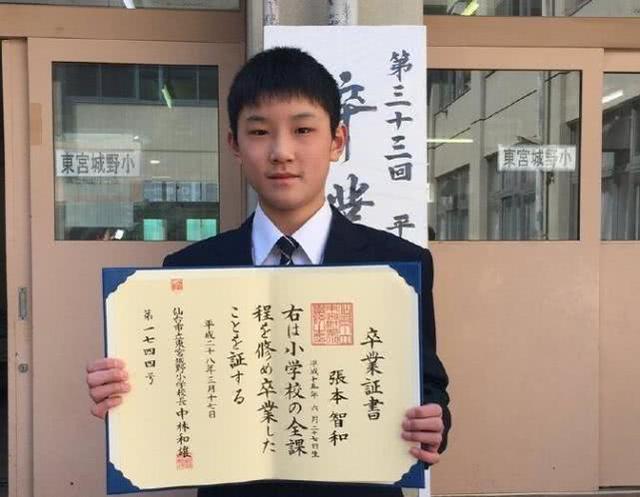 第三十三回 平
卒業
東宮城野小
東宮城野小
卒業証書
張本智和
平成十五年 六月二十七日生
右は小学校の全課
程を修め卒業した
ことを証する
平成二十八年三月十七日
仙台市立東宮城野小学校長 中林和雄
第一七四四号